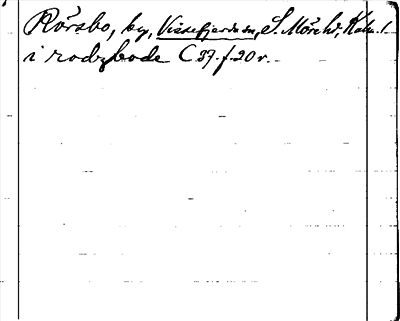 Rörsbo, by, Vissefjerda sn, S. Möre hd, Kalm. l.
i rodzbode C 37. f. 20 v.